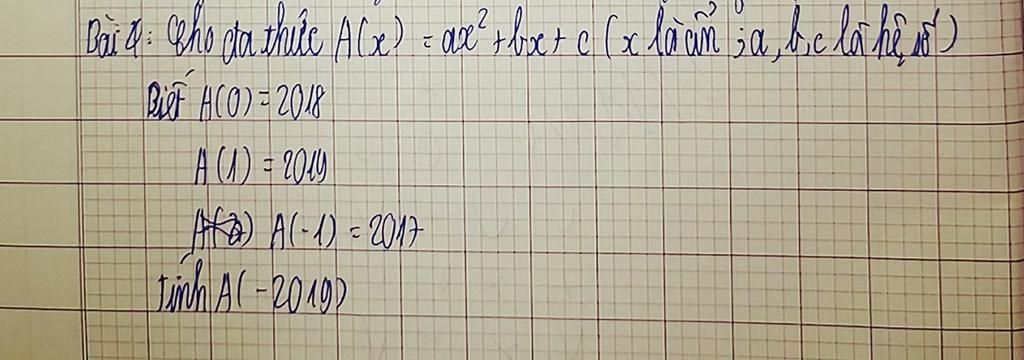 Bài 4: Cho đa thức A(x) = ax² + bx + c (x là ẩn; a, b, c là hệ số)
Biết A(0) = 2018
A(1) = 2019
A(-1) = 2017
Tính A(-2019)